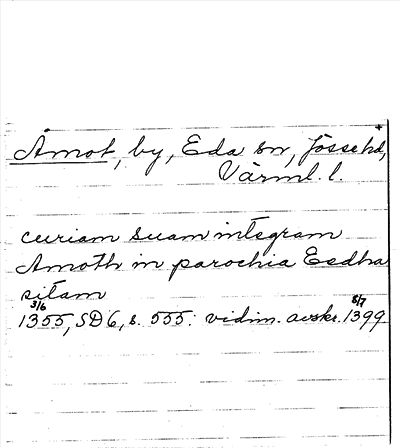 Åmot, by, Eda sn, Jösse hd,
Värml. l.
curiam suam integram
Amoth in parochia Eedha
sitam
3/6 8/7
1355, SD 6, s. 555: vidim. avskr. 1399